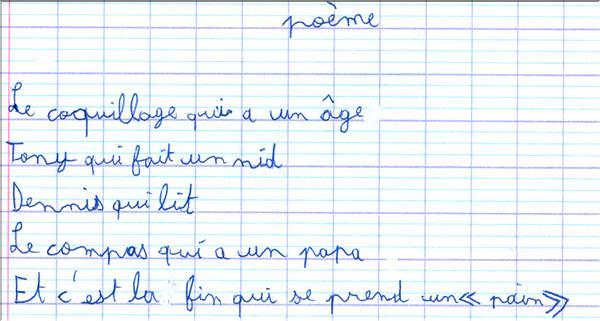 poème
Le coquillage qui a un âge
Tony qui fait un nid
Dennis qui lit
Le compas qui a un papa
Et c'est la fin qui se prend un « pain »